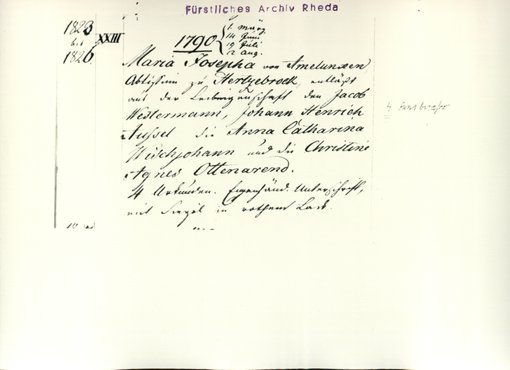 Fürstliches Archiv Rheda
1823
bis
1826
XXIII
1790
1. März
14 Juni
19 Juli
12 Aug.
Maria Josepha von Amelunxen,
Äbtissin zu Hertzebrock, entläßt
aus der Leibeigenschaft den Jacob
Westermann, Johann Henrich
Aussel die Anna Catharina
Wischjohann und die Christine
Agnes Ottenarend.
4 Urkunden. Eigenhänd. Unterschrift,
mit Siegel in rothem Lack.